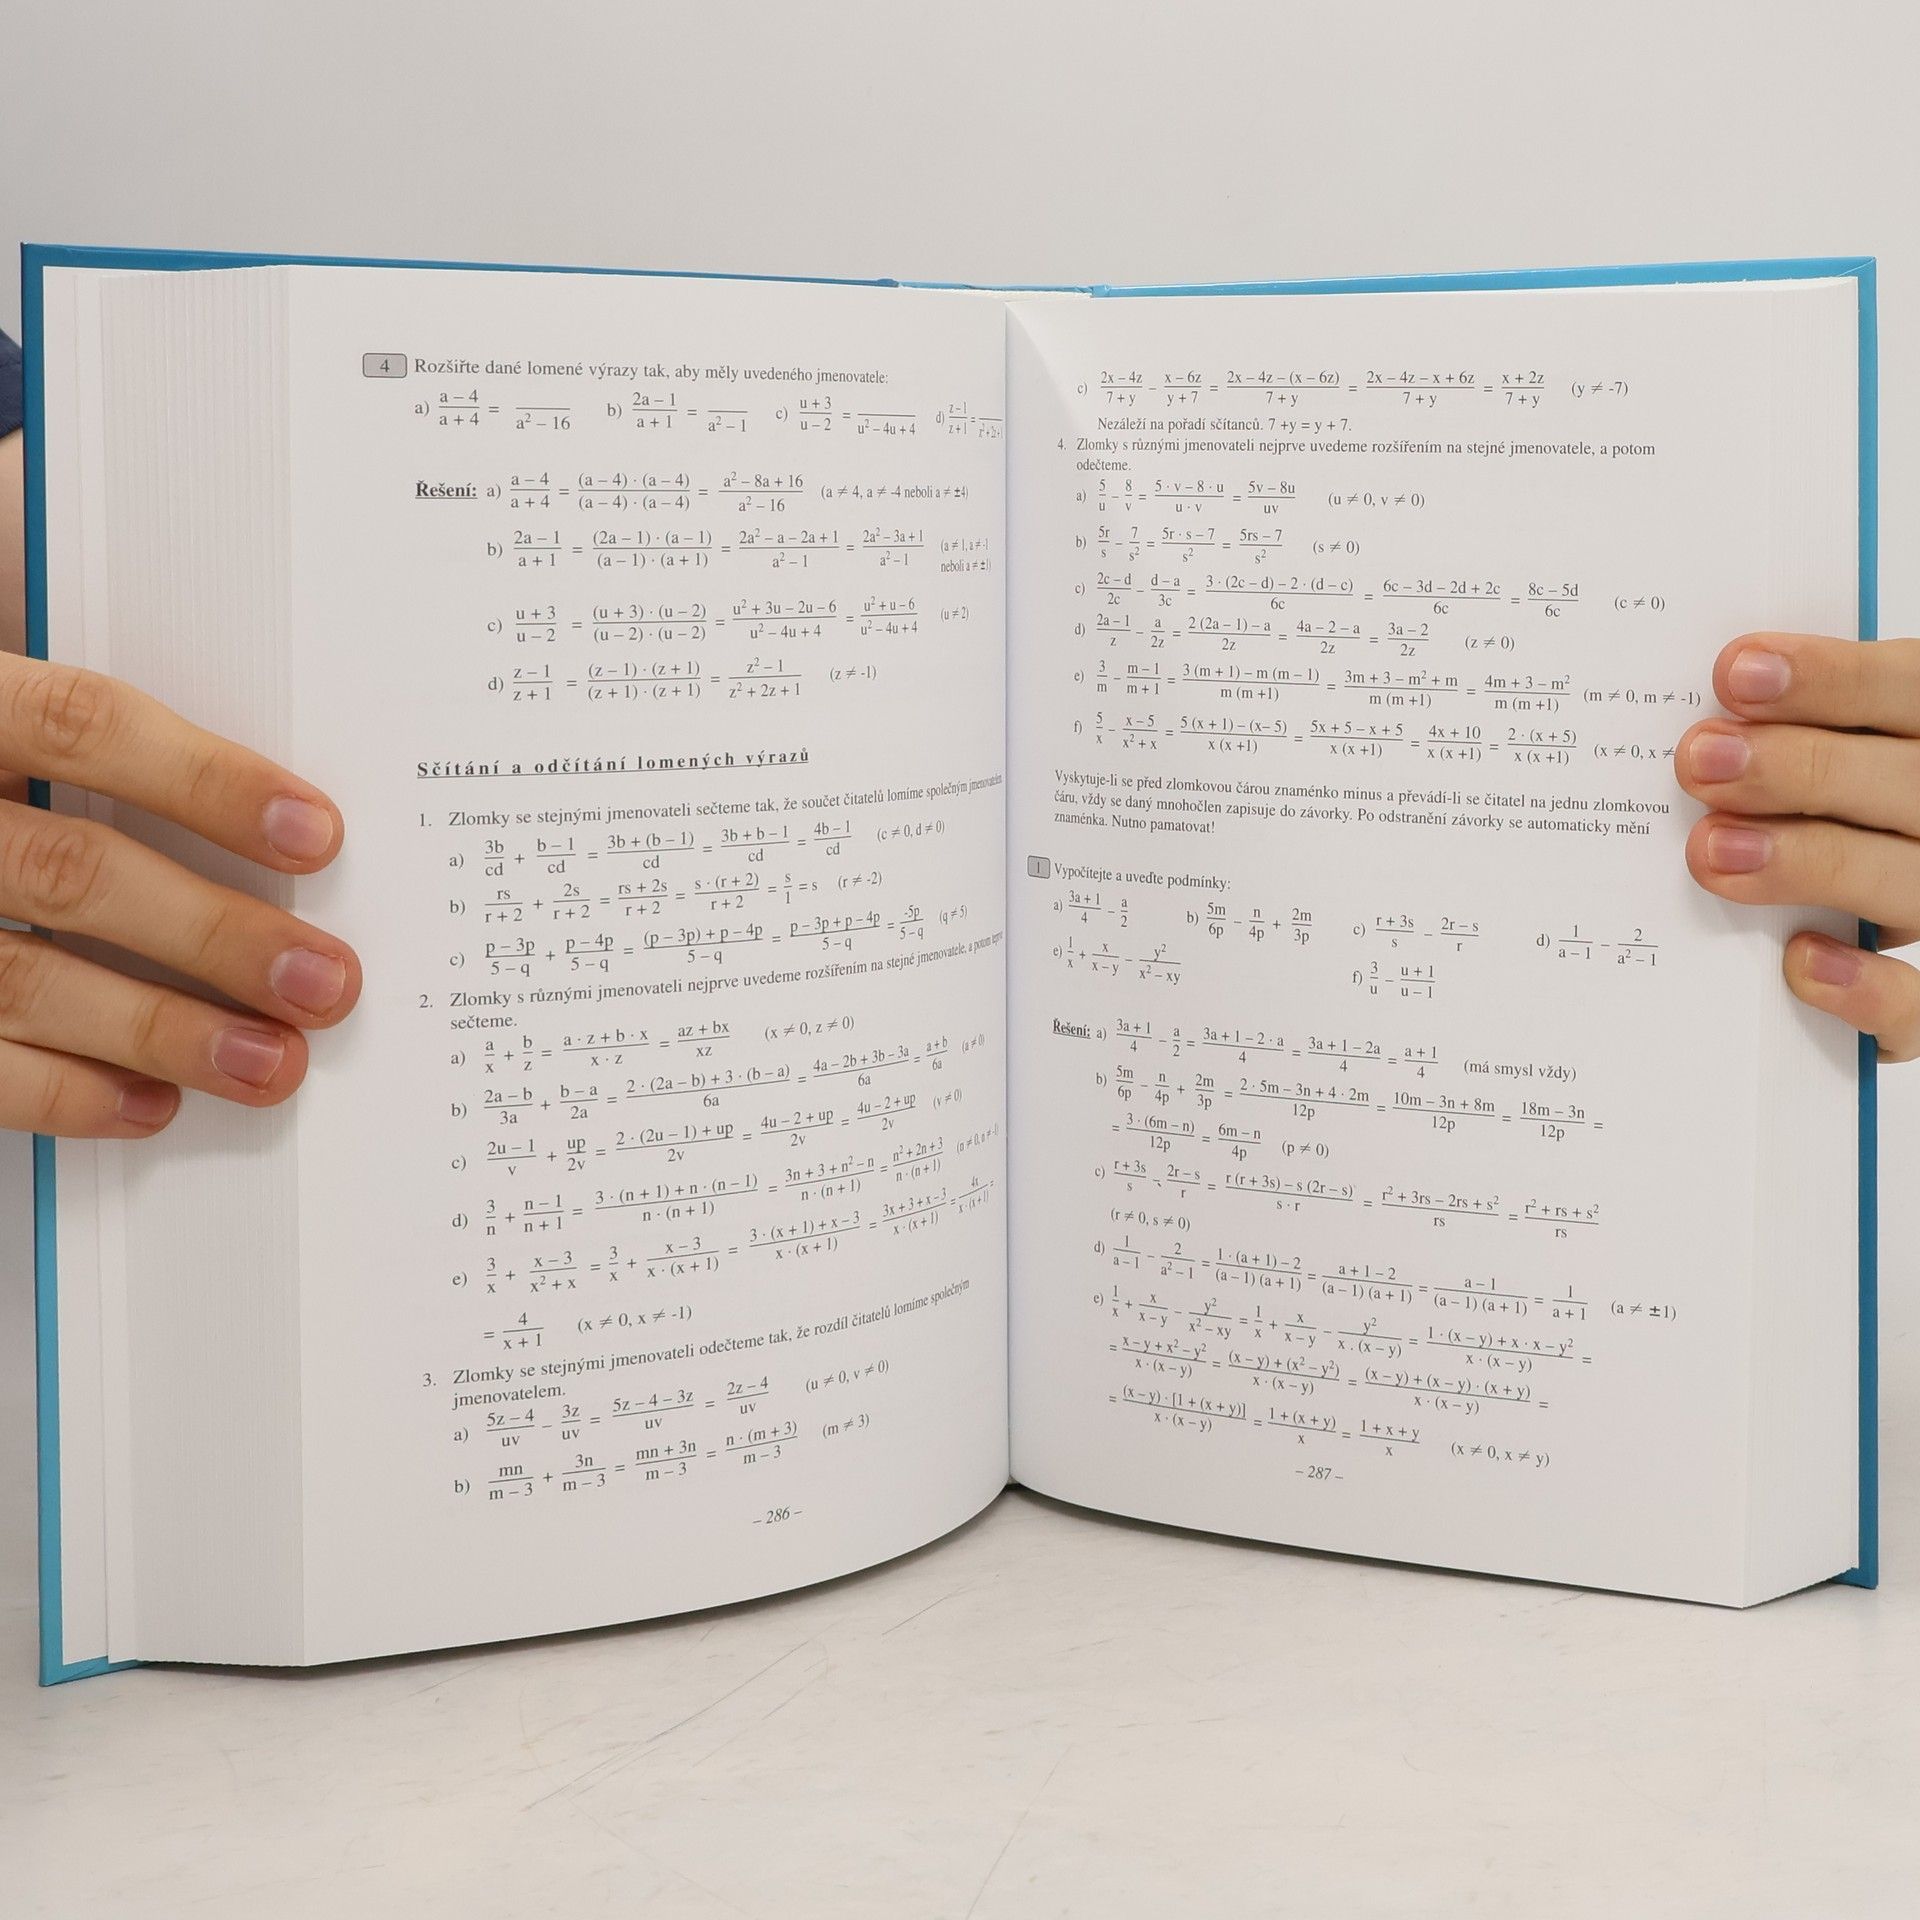 4 Rozšiřte dané lomené výrazy tak, aby měly uvedeného jmenovatele:
a) (a – 4)/(a + 4) = /(a² – 16) b) (2a – 1)/(a + 1) = /(a² – 1) c) (u + 3)/(u – 2) = /(u² – 4u + 4) d) (z – 1)/(z + 1) = /(z² + 2z + 1)
Řešení: a) (a – 4)/(a + 4) = ((a – 4) · (a – 4))/((a – 4) · (a – 4)) = (a² – 8a + 16)/(a² – 16) (a ≠ 4, a ≠ -4 neboli a ≠ ±4)
b) (2a – 1)/(a + 1) = ((2a – 1) · (a – 1))/((a – 1) · (a + 1)) = (2a² – a – 2a + 1)/(a² – 1) = (2a² – 3a + 1)/(a² – 1) (a ≠ 1, a ≠ -1
neboli a ≠ ±1)
c) (u + 3)/(u – 2) = ((u + 3) · (u – 2))/((u – 2) · (u – 2)) = (u² + 3u – 2u – 6)/(u² – 4u + 4) = (u² + u – 6)/(u² – 4u + 4) (u ≠ 2)
d) (z – 1)/(z + 1) = ((z – 1) · (z + 1))/((z + 1) · (z + 1)) = (z² – 1)/(z² + 2z + 1) (z ≠ -1)
Sčítání a odčítání lomených výrazů
1. Zlomky se stejnými jmenovateli sečteme tak, že součet čitatelů lomíme společným jmenovatelem
a) 3b/cd + (b – 1)/cd = (3b + (b – 1))/cd = (3b + b – 1)/cd = (4b – 1)/cd (c ≠ 0, d ≠ 0)
b) rs/(r + 2) + 2s/(r + 2) = (rs + 2s)/(r + 2) = (s · (r + 2))/(r + 2) = s/1 = s (r ≠ -2)
c) (p – 3p)/(5 – q) + (p – 4p)/(5 – q) = ((p – 3p) + p – 4p)/(5 – q) = (p – 3p + p – 4p)/(5 – q) = -5p/(5 – q) (q ≠ 5)
2. Zlomky s různými jmenovateli nejprve uvedeme rozšířením na stejné jmenovatele, a potom teprve
sečteme.
a) a/x + b/z = (a · z + b · x)/(x · z) = (az + bx)/xz (x ≠ 0, z ≠ 0)
b) (2a – b)/3a + (b – a)/2a = (2 · (2a – b) + 3 · (b – a))/6a = (4a – 2b + 3b – 3a)/6a = (a + b)/6a (a ≠ 0)
c) (2u – 1)/v + up/2v = (2 · (2u – 1) + up)/2v = (4u – 2 + up)/2v = (4u – 2 + up)/2v (v ≠ 0)
d) 3/n + (n – 1)/(n + 1) = (3 · (n + 1) + n · (n – 1))/(n · (n + 1)) = (3n + 3 + n² – n)/(n · (n + 1)) = (n² + 2n + 3)/(n · (n + 1)) (n ≠ 0, n ≠ -1)
e) 3/x + (x – 3)/(x² + x) = 3/x + (x – 3)/(x · (x + 1)) = (3 · (x + 1) + x – 3)/(x · (x + 1)) = (3x + 3 + x – 3)/(x · (x + 1)) = 4x/(x · (x + 1)) =
= 4/(x + 1) (x ≠ 0, x ≠ -1)
3. Zlomky se stejnými jmenovateli odečteme tak, že rozdíl čitatelů lomíme společným
jmenovatelem.
a) (5z – 4)/uv – 3z/uv = (5z – 4 – 3z)/uv = (2z – 4)/uv (u ≠ 0, v ≠ 0)
b) mn/(m – 3) + 3n/(m – 3) = (mn + 3n)/(m – 3) = (n · (m + 3))/(m – 3) (m ≠ 3)
– 286 –
c) (2x – 4z)/(7 + y) – (x – 6z)/(y + 7) = (2x – 4z – (x – 6z))/(7 + y) = (2x – 4z – x + 6z)/(7 + y) = (x + 2z)/(7 + y) (y ≠ -7)
Nezáleží na pořadí sčítanců. 7 +y = y + 7.
4. Zlomky s různými jmenovateli nejprve uvedeme rozšířením na stejné jmenovatele, a potom
odečteme.
a) 5/u – 8/v = (5 · v – 8 · u)/(u · v) = (5v – 8u)/uv (u ≠ 0, v ≠ 0)
b) 5r/s – 7/s² = (5r · s – 7)/s² = (5rs – 7)/s² (s ≠ 0)
c) (2c – d)/2c – (d – a)/3c = (3 · (2c – d) – 2 · (d – c))/6c = (6c – 3d – 2d + 2c)/6c = (8c – 5d)/6c (c ≠ 0)
d) (2a – 1)/z – a/2z = (2 (2a – 1) – a)/2z = (4a – 2 – a)/2z = (3a – 2)/2z (z ≠ 0)
e) 3/m – (m – 1)/(m + 1) = (3 (m + 1) – m (m – 1))/(m (m +1)) = (3m + 3 – m² + m)/(m (m +1)) = (4m + 3 – m²)/(m (m +1)) (m ≠ 0, m ≠ -1)
f) 5/x – (x – 5)/(x² + x) = (5 (x + 1) – (x– 5))/(x (x +1)) = (5x + 5 – x + 5)/(x (x +1)) = (4x + 10)/(x (x +1)) = (2 · (x + 5))/(x (x +1)) (x ≠ 0, x ≠
Vyskytuje-li se před zlomkovou čárou znaménko minus a převádí-li se čitatel na jednu zlomkovou
čáru, vždy se daný mnohočlen zapisuje do závorky. Po odstranění závorky se automaticky mění
znaménka. Nutno pamatovat!
1 Vypočítejte a uveďte podmínky:
a) (3a + 1)/4 – a/2 b) 5m/6p – n/4p + 2m/3p c) (r + 3s)/s – (2r – s)/r d) 1/(a – 1) – 2/(a² – 1)
e) 1/x + x/(x – y) – y²/(x² – xy) f) 3/u – (u + 1)/(u – 1)
Řešení: a) (3a + 1)/4 – a/2 = (3a + 1 – 2 · a)/4 = (3a + 1 – 2a)/4 = (a + 1)/4 (má smysl vždy)
b) 5m/6p – n/4p + 2m/3p = (2 · 5m – 3n + 4 · 2m)/12p = (10m – 3n + 8m)/12p = (18m – 3n)/12p =
= (3 · (6m – n))/12p = (6m – n)/4p (p ≠ 0)
c) (r + 3s)/s – (2r – s)/r = (r (r + 3s) – s (2r – s))/(s · r) = (r² + 3rs – 2rs + s²)/rs = (r² + rs + s²)/rs
(r ≠ 0, s ≠ 0)
d) 1/(a – 1) – 2/(a² – 1) = (1 · (a + 1) – 2)/((a – 1) (a + 1)) = (a + 1 – 2)/((a – 1) (a + 1)) = (a – 1)/((a – 1) (a + 1)) = 1/(a + 1) (a ≠ ±1)
e) 1/x + x/(x – y) – y²/(x² – xy) = 1/x + x/(x – y) – y²/(x . (x – y)) = (1 · (x – y) + x · x – y²)/(x · (x – y)) =
= (x – y + x² – y²)/(x · (x – y)) = ((x – y) + (x² – y²))/(x · (x – y)) = ((x – y) + (x – y) · (x + y))/(x · (x – y)) =
= ((x – y) · [1 + (x + y)])/(x · (x – y)) = (1 + (x + y))/x = (1 + x + y)/x (x ≠ 0, x ≠ y)
– 287 –